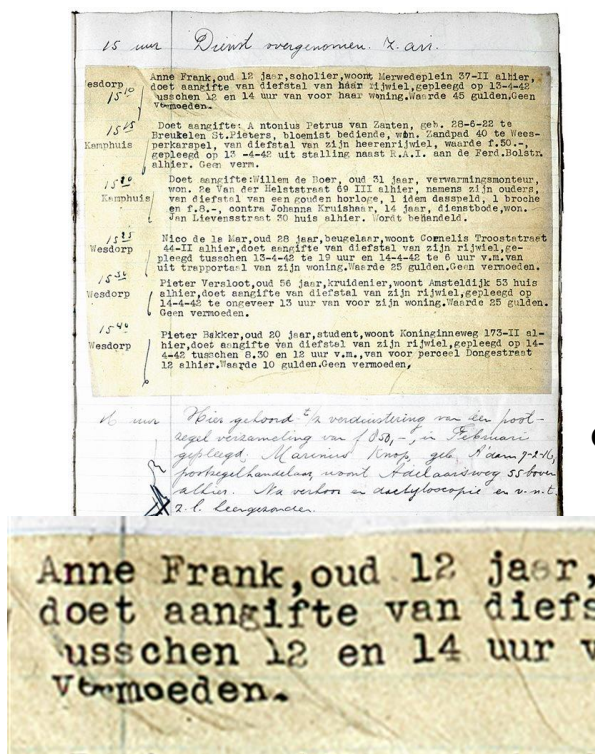 15 uur Dienst overgenomen. Z. arr.
Wesdorp
15 10
Anne Frank,oud 12 jaar,scholier,woont Merwedeplein 37-II alhier,
doet aangifte van diefstal van haar rijwiel,gepleegd op 13-4-42
tusschen 12 en 14 uur van voor haar woning.Waarde 45 gulden.Geen
vermoeden.
15 15
Kamphuis
Doet aangifte: Antonius Petrus van Zanten, geb. 28-6-22 te
Breukelen St.Pieters, bloemist bediende, won. Zandpad 40 te Wees-
perkarspel, van diefstal van zijn heerenrijwiel, waarde f.50.-,
gepleegd op 13 -4-42 uit stalling naast R.A.I. aan de Ferd.Bolstr.
alhier. Geen verm.
15 20
Kamphuis
Doet aangifte:Willem de Boer, oud 31 jaar, verwarmingsmonteur,
won. 2e Van der Helststraat 69 III alhier, namens zijn ouders,
van diefstal van een gouden horloge, 1 idem dasspeld, 1 broche
en f.8.-, contra Johanna Kruishaar, 14 jaar, dienstbode,won.
Jan Lievensstraat 30 huis alhier. Wordt behandeld.
15 25
Wesdorp
Nico de la Mar,oud 28 jaar,beugelaar,woont Cornelis Trooststraat
44-II alhier,doet aangifte van diefstal van zijn rijwiel,ge-
pleegd tusschen 13-4-42 te 19 uur en 14-4-42 te 6 uur v.m.van
uit trapportaal van zijn woning.Waarde 25 gulden.Geen vermoeden.
15 30
Wesdorp
Pieter Versloot,oud 56 jaar,kruidenier,woont Amsteldijk 53 huis
alhier,doet aangifte van diefstal van zijn rijwiel,gepleegd op
14-4-42 te ongeveer 13 uur van voor zijn woning.Waarde 25 gulden.
Geen vermoeden.
15 40
Wesdorp
Pieter Bakker,oud 20 jaar,student,woont Koninginneweg 173-II al-
hier,doet aangifte van diefstal van zijn rijwiel,gepleegd op 14-
4-42 tusschen 8.30 en 12 uur v.m.,van voor perceel Dongestraat
12 alhier.Waarde 10 gulden.Geen vermoeden,
16 uur Hier gehoord t/z verduistering van een post-
zegel verzameling van f 050,-, in Februari
gepleegd, Marinius Knop, geb. A'dam 7-2-16,
postzegelhandelaar, woont Adelaarsweg 55 boven
alhier. Na verhoor en dactyloscopie en v.n.t.
z. l. heengezonden.
Anne Frank,oud 12 jaar,
doet aangifte van diefs
usschen 12 en 14 uur v
vermoeden.